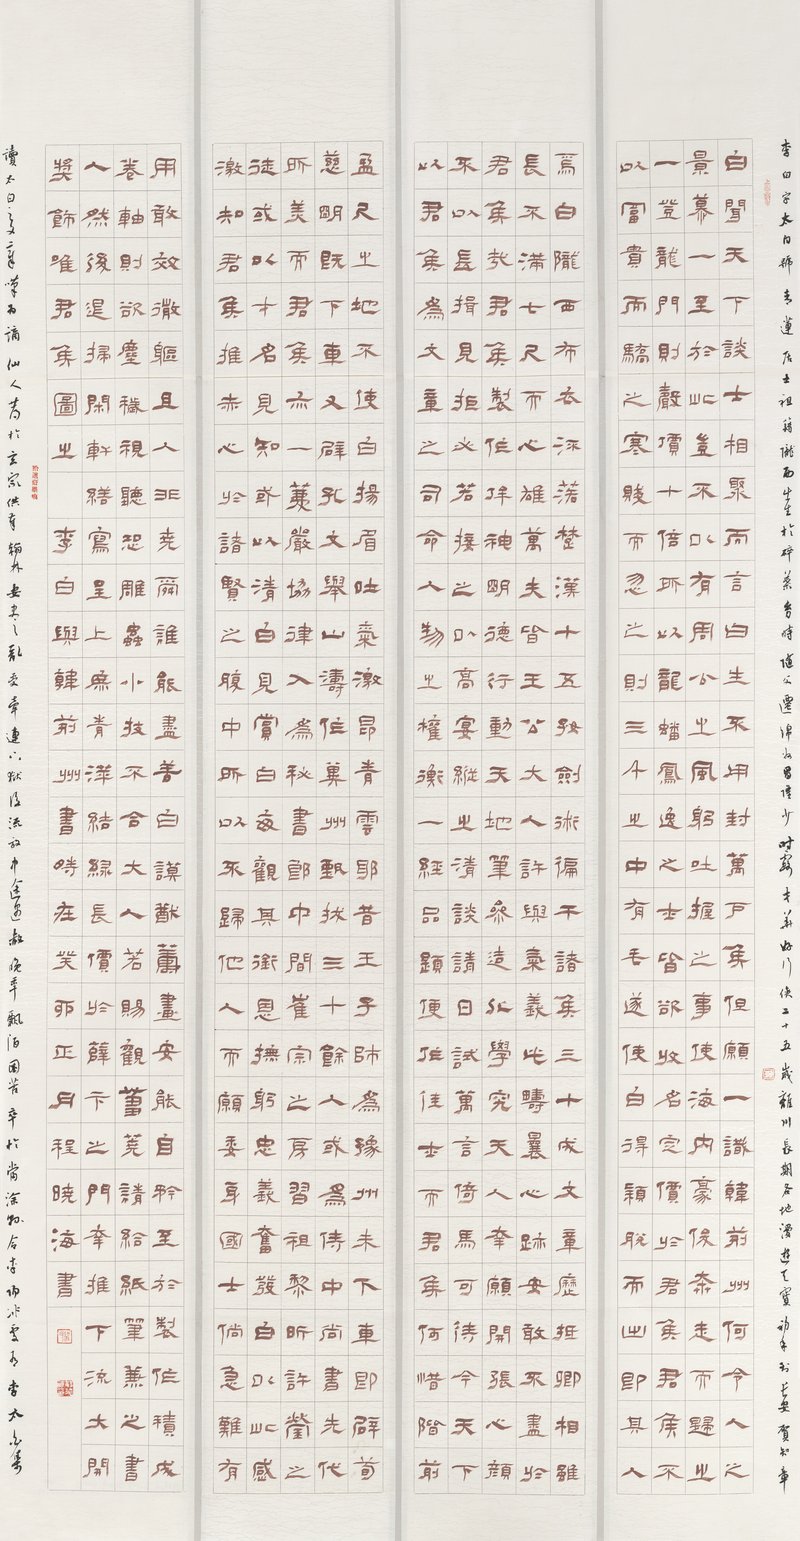 李白字太白號青蓮居士祖籍隴西出生於碎葉幼時隨父遷綿州昌隆少時露才華好行俠二十五歲離川長期各地漫遊天寶初年到長安賀知章
白聞天下談士相聚而言曰生不用封萬戶侯但願一識韓荊州何令人之
景慕一至於此豈不以有周公之風躬吐握之事使海內豪俊奔走而歸之
一登龍門則聲價十倍所以龍蟠鳳逸之士皆欲收名定價於君侯君侯不
以富貴而驕之寒賤而忽之則三千之中有毛遂使白得穎脫而出即其人
焉白隴西布衣流落楚漢十五好劍術徧干諸侯三十成文章歷抵卿相雖
長不滿七尺而心雄萬夫皆王公大人許與氣義此疇曩心跡安敢不盡於
君侯哉君侯製作侔神明德行動天地筆參造化學究天人幸願開張心顏
不以長揖見拒必若接之以高宴縱之清談請日試萬言倚馬可待今天下
以君侯為文章之司命人物之權衡一經品題便作佳士而君侯何惜階前
盈尺之地不使白揚眉吐氣激昂青雲耶昔王子師為豫州未下車即辟荀
慈明既下車又辟孔文舉山濤作冀州甄拔三十餘人或為侍中尚書先代
所美而君侯亦一薦嚴協律入為秘書郎中間崔宗之房習祖黎昕許瑩之
徒或以才名見知或以清白見賞白每觀其銜恩撫躬忠義奮發白以此感
激知君侯推赤心於諸賢之腹中所以不歸他人而願委身國士倘急難有
用敢效微軀且人非堯舜誰能盡善白謨猷籌畫安能自矜至於製作積成
卷軸則欲塵穢視聽恐雕蟲小技不合大人若賜觀芻蕘請給紙筆兼之書
人然後退掃閑軒繕寫呈上庶青萍結綠長價於薛卞之門幸推下流大開
獎飾唯君侯圖之 李白與韓荊州書時在癸卯正月程曉海書
讀太白之文章嘆為謫仙人薦於玄宗供奉翰林安史之亂受牽連入獄後流放中途遇赦晚年飄泊困苦卒於當塗李陽冰處有李太白集